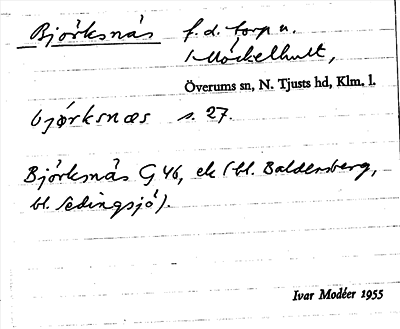 Björksnäs f.d. torp u.
Möckelhult,
Överums sn, N. Tjusts hd, Klm. l.
bjørksnæs s. 27.
Björksnäs G 46, ek (bl. Baldersberg,
bl. Sedingsjö).
Ivar Modéer 1955